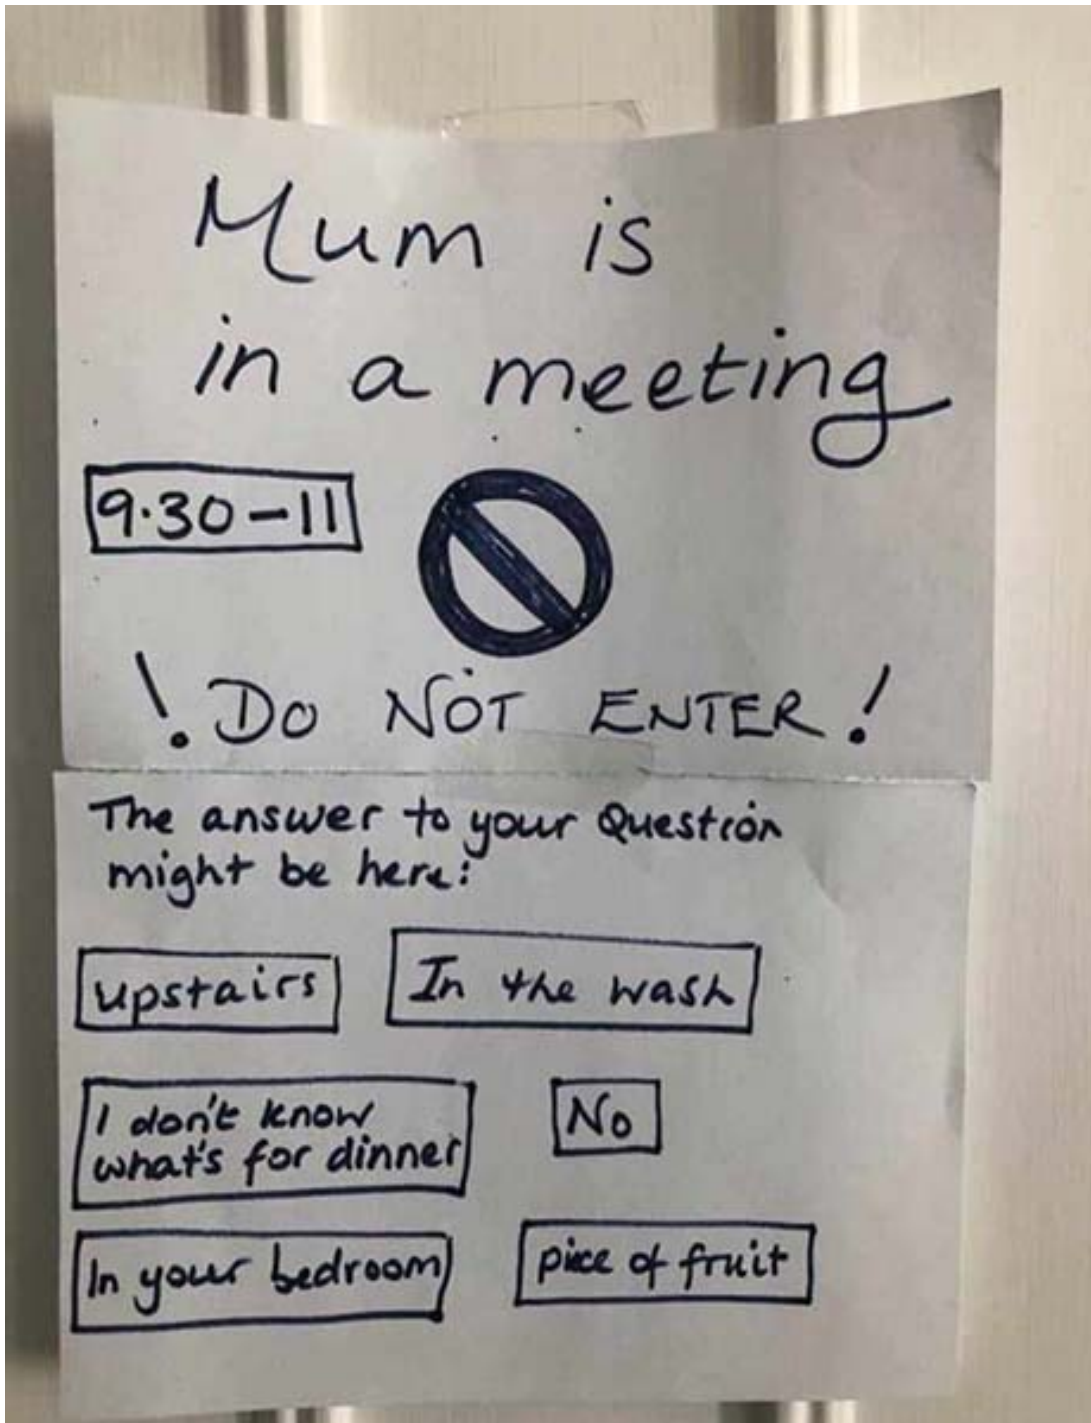 Mum is
in a meeting
9.30-11
! DO NOT ENTER!
The answer to your Question
might be here:
upstairs
In the wash
I don't know
what's for dinner
No
In your bedroom
piece of fruit